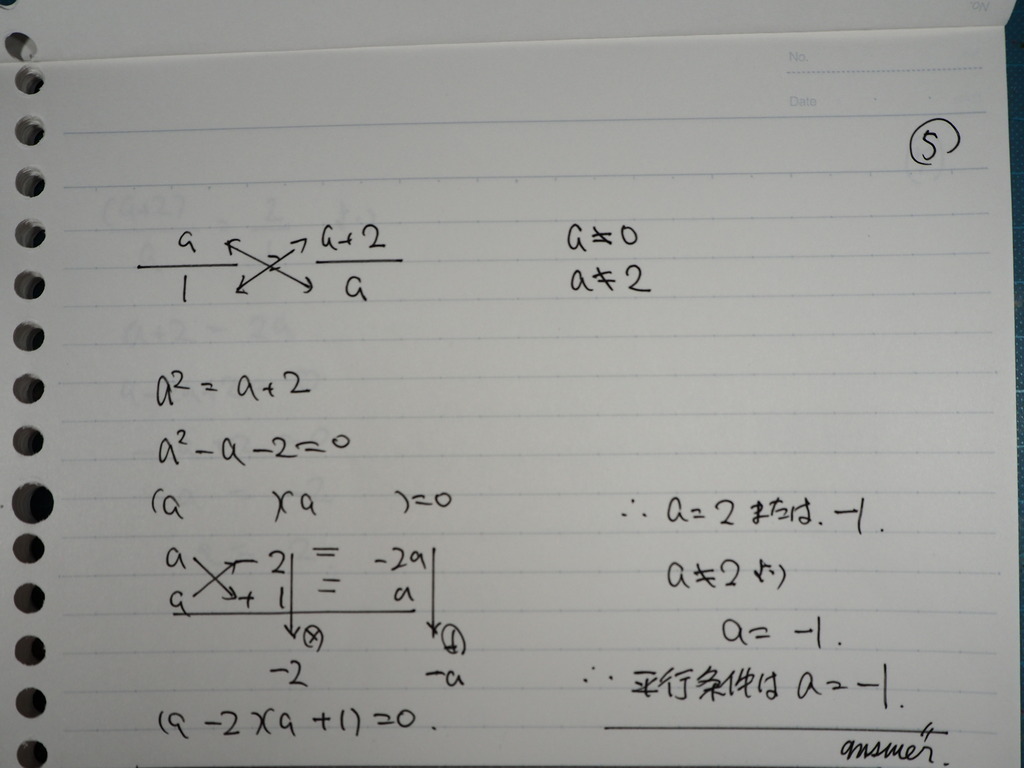 No.
Date
⑤
a/1 = (a+2)/a
a≠0
a≠2
a² = a+2
a²-a-2=0
(a )(a )=0
a -2 = -2a
a +1 = a
(×) (+)
-2 -a
(a-2)(a+1)=0.
∴ a=2 または. -1.
a≠2 より
a= -1.
∴ 平行条件は a=-1.
answer.